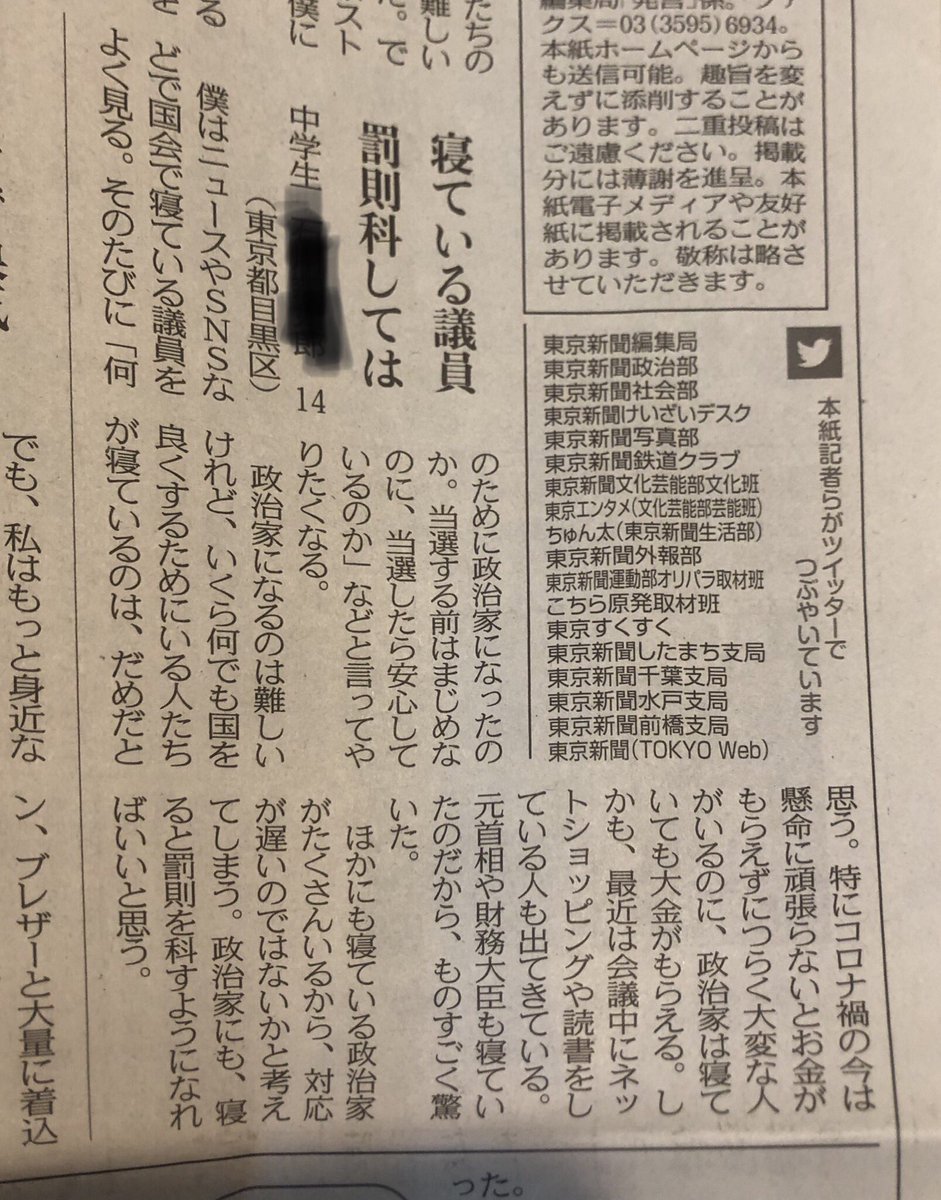 編集局「発言」係。ファ
クス＝03(3595)6934。
本紙ホームページから
も送信可能。趣旨を変
えずに添削することが
あります。二重投稿は
ご遠慮ください。掲載
分には薄謝を進呈。本
紙電子メディアや友好
紙に掲載されることが
あります。敬称は略さ
せていただきます。
本紙記者らがツイッターで
つぶやいています
東京新聞編集局
東京新聞政治部
東京新聞社会部
東京新聞けいざいデスク
東京新聞写真部
東京新聞鉄道クラブ
東京新聞文化芸能部文化班
東京エンタメ(文化芸能部芸能班)
ちゅん太(東京新聞生活部)
東京新聞外報部
東京新聞運動部オリパラ取材班
こちら原発取材班
東京すくすく
東京新聞したまち支局
東京新聞千葉支局
東京新聞水戸支局
東京新聞前橋支局
東京新聞(TOKYO Web)
たちの
難しい
。で
スト
僕に
る
を
寝ている議員
罰則科しては
中学生 郎 14
（東京都目黒区）
僕はニュースやSNSな
どで国会で寝ている議員を
よく見る。そのたびに「何
のために政治家になったの
か。当選する前はまじめな
のに、当選したら安心して
いるのか」などと言ってや
りたくなる。
政治家になるのは難しい
けれど、いくら何でも国を
良くするためにいる人たち
が寝ているのは、だめだと
思う。特にコロナ禍の今は
懸命に頑張らないとお金が
もらえずにつらく大変な人
がいるのに、政治家は寝て
いても大金がもらえる。し
かも、最近は会議中にネッ
トショッピングや読書をし
ている人も出てきている。
元首相や財務大臣も寝てい
たのだから、ものすごく驚
いた。
ほかにも寝ている政治家
がたくさんいるから、対応
が遅いのではないかと考え
てしまう。政治家にも、寝
ると罰則を科すようになれ
ばいいと思う。
でも、私はもっと身近な
ン、ブレザーと大量に着込
った。